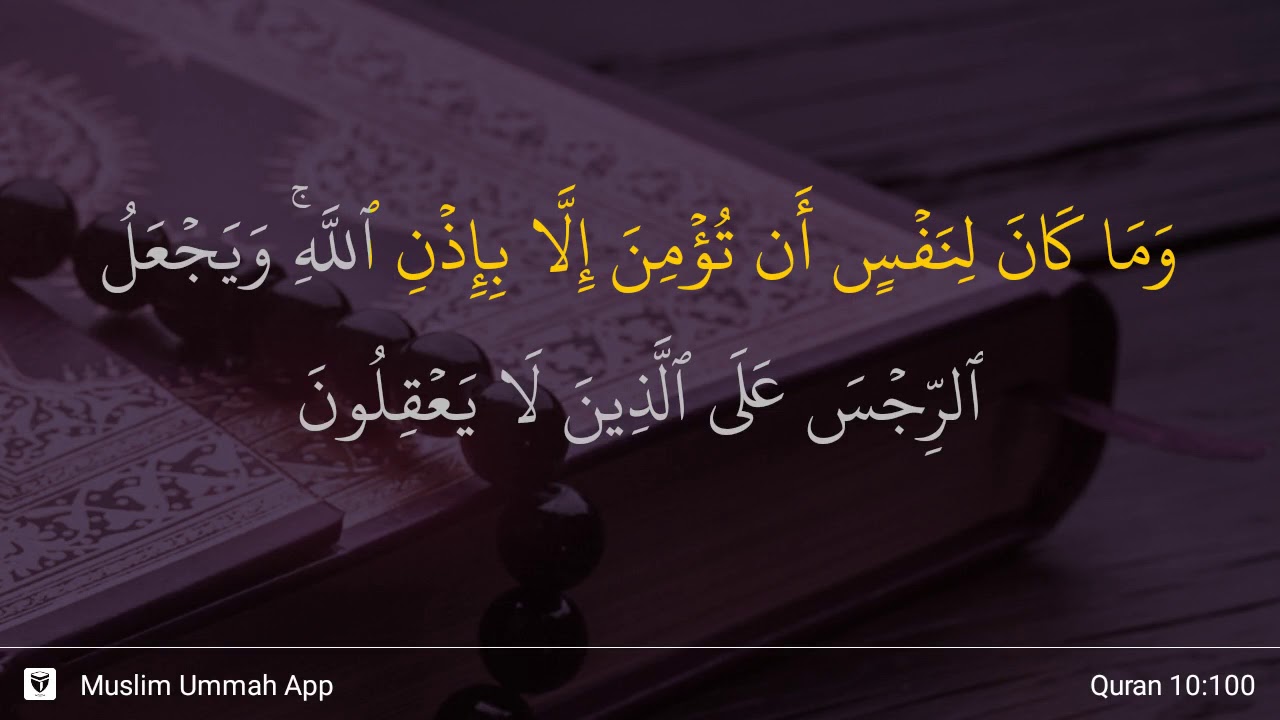 وَمَا كَانَ لِنَفۡسٍ أَن تُؤۡمِنَ إِلَّا بِإِذۡنِ ٱللَّهِۚ وَيَجۡعَلُ
ٱلرِّجۡسَ عَلَى ٱلَّذِينَ لَا يَعۡقِلُونَ
Muslim Ummah App
Quran 10:100